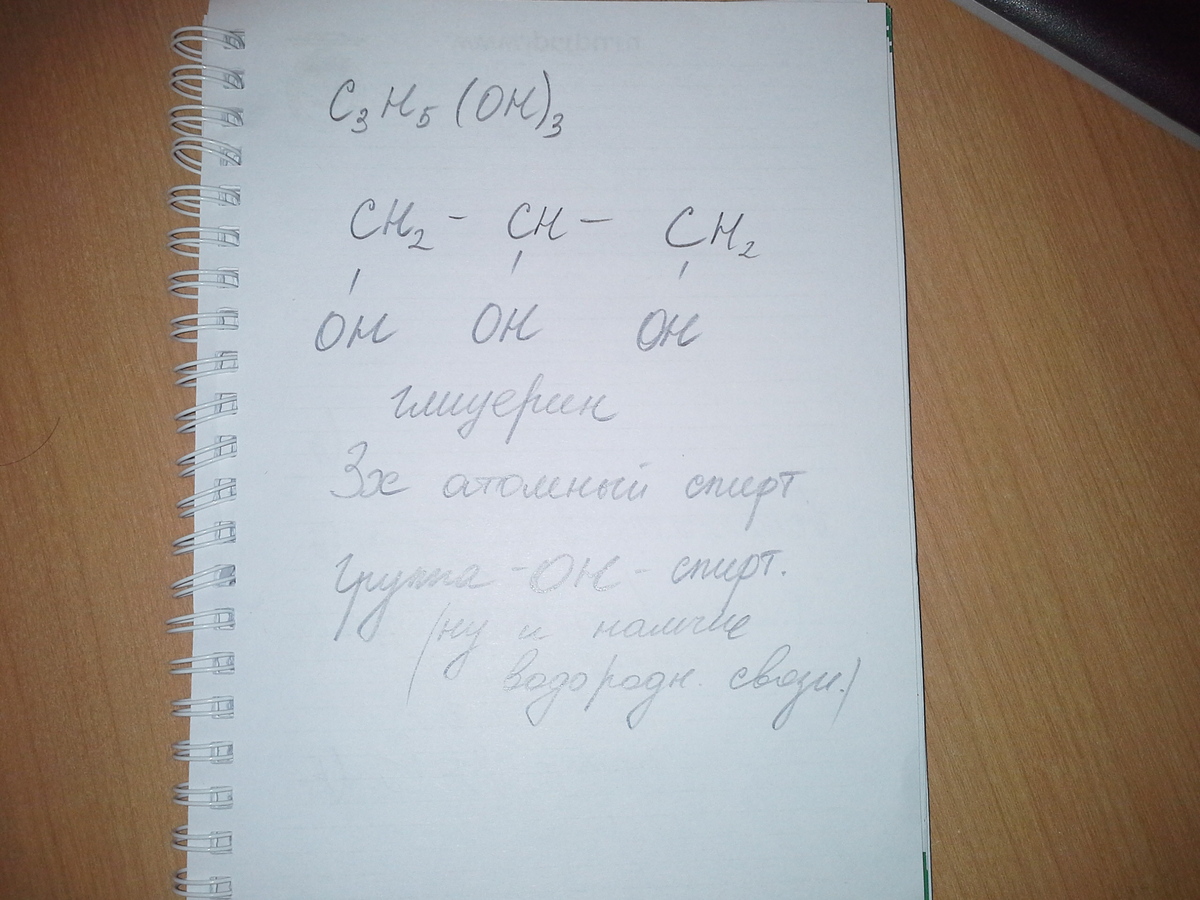 C₃H₅(OH)₃
CH₂ - CH - CH₂
OH OH OH
глицерин
3х атомный спирт
группа -OH- спирт.
(ну и наличие
водородн. связи.)